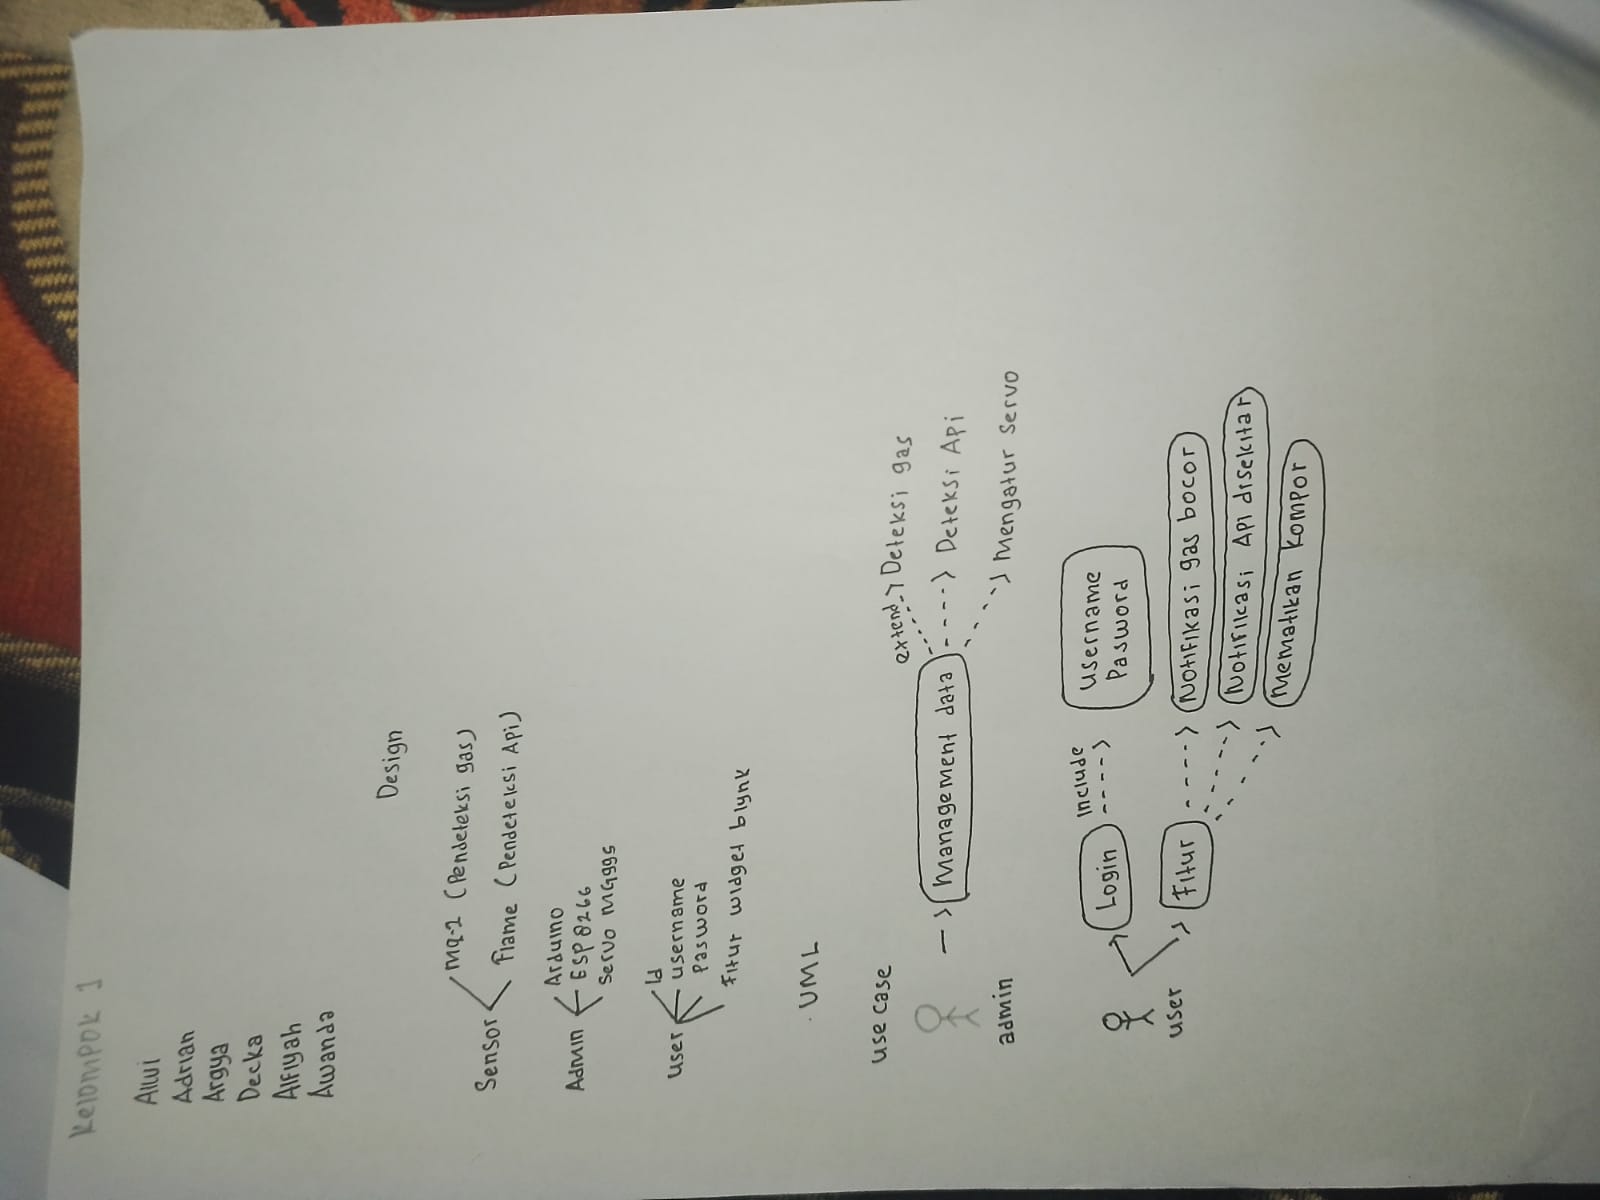 Kelompok 1
Allui
Adrian
Argya
Decka
Alfiyah
Awanda
Design
Sensor
MQ-2 (Pendeteksi gas)
Flame (Pendeteksi Api)
Admin
Arduino
ESP8266
Servo MG995
user
Id
username
Pasword
Fitur widget blynk
UML
use case
admin
Management data
extend
Deteksi gas
Deteksi Api
Mengatur Servo
user
Login
Include
Username
Pasword
Fitur
Notifikasi gas bocor
Notifikasi Api disekitar
Mematikan Kompor